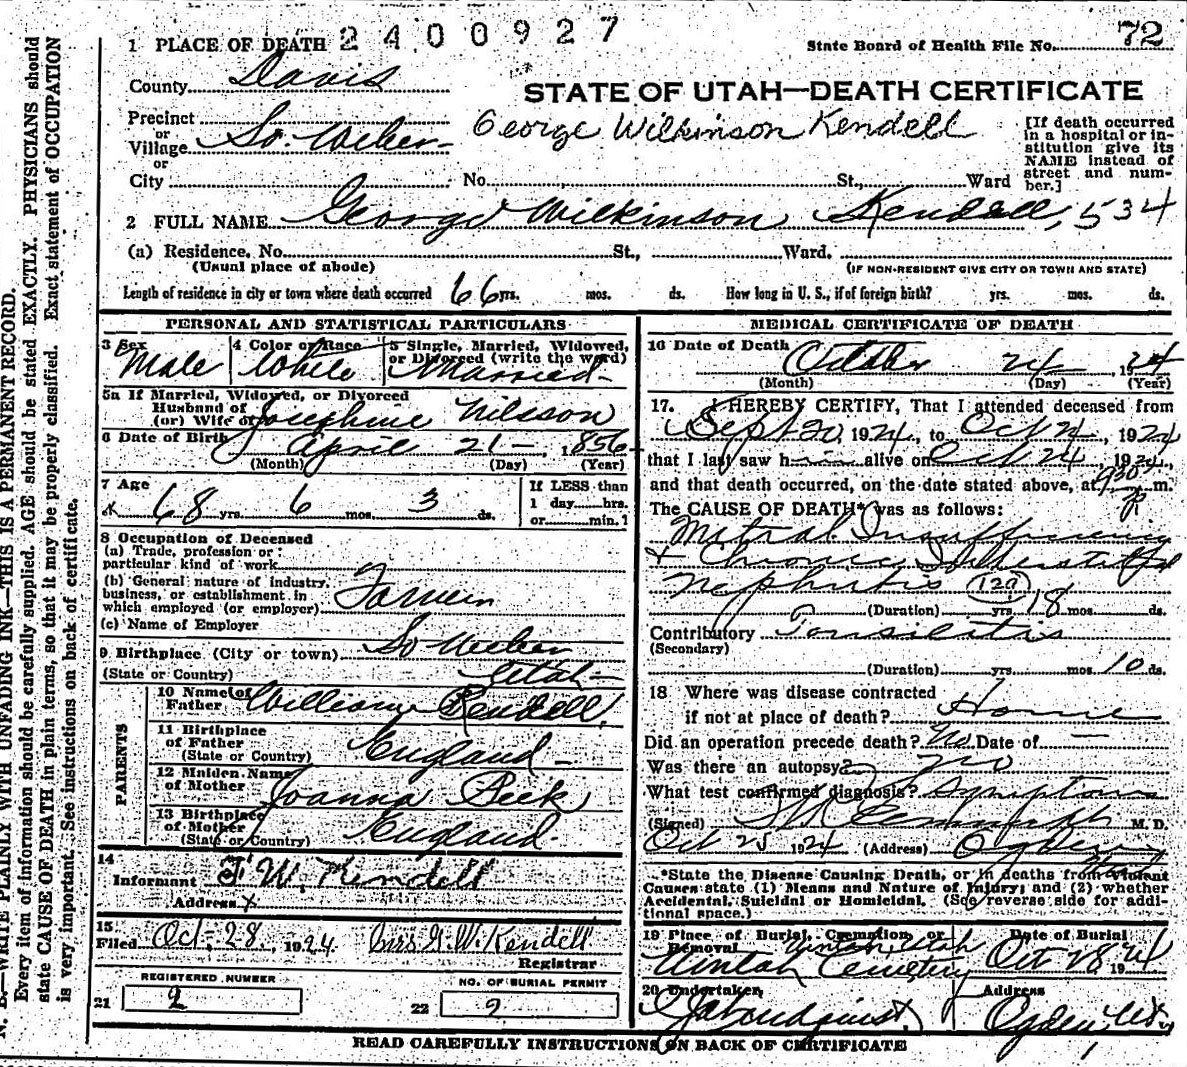 1 PLACE OF DEATH 2400927
State Board of Health File No. 72
County Davis
STATE OF UTAH—DEATH CERTIFICATE
Precinct
or
Village So. Weber
or
City No. St., Ward
George Wilkinson Kendell
[If death occurred
in a hospital or in-
stitution give its
NAME instead of
street and num-
ber.]
2 FULL NAME George Wilkinson Kendell, 534
(a) Residence. No. St., Ward.
(Usual place of abode) (IF NON-RESIDENT GIVE CITY OR TOWN AND STATE)
Length of residence in city or town where death occurred 66 yrs. mos. ds. How long in U. S., if of foreign birth? yrs. mos. ds.
PERSONAL AND STATISTICAL PARTICULARS
3 Sex Male
4 Color or Race White
5 Single, Married, Widowed,
or Divorced (write the word)
Married
5a If Married, Widowed, or Divorced
Husband of
(or) Wife of Josephine Nilsson
6 Date of Birth April 21 — 1856
(Month) (Day) (Year)
7 Age
68 yrs. 6 mos. 3 ds.
If LESS than
1 day hrs.
or min. ?
8 Occupation of Deceased
(a) Trade, profession or
particular kind of work
(b) General nature of industry,
business, or establishment in
which employed (or employer)
(c) Name of Employer
9 Birthplace (City or town) So Weber
(State or Country) Utah
PARENTS
10 Name of
Father William Kendell
11 Birthplace
of Father
(State or Country) England
12 Maiden Name
of Mother Joanna Peek
13 Birthplace
of Mother
(State or Country) England
14
Informant F. W. Kendell
Address x
15
Filed Oct. 28, 1924. Mrs G. W. Kendell
Registrar
REGISTERED NUMBER
21 2
NO. OF BURIAL PERMIT
22 2
MEDICAL CERTIFICATE OF DEATH
16 Date of Death October 24 1924
(Month) (Day) (Year)
17. I HEREBY CERTIFY, That I attended deceased from
Sept 20, 1924, to Oct 24, 1924
that I last saw him alive on Oct 24, 1924,
and that death occurred, on the date stated above, at 930 p. m.
The CAUSE OF DEATH* was as follows:
Mitral Insufficiency
+ Chronic Interstitial
Nephritis 129
(Duration) yrs. 18 mos. ds.
Contributory Tonsilitis
(Secondary)
(Duration) yrs. mos. 10 ds.
18 Where was disease contracted
if not at place of death? Home
Did an operation precede death? No Date of —
Was there an autopsy? No
What test confirmed diagnosis? Symptoms
(Signed) M. D.
Oct 25 1924 (Address) Ogden
*State the Disease Causing Death, or in deaths from Violent
Causes state (1) Means and Nature of Injury; and (2) whether
Accidental, Suicidal or Homicidal. (See reverse side for addi-
tional space.)
19 Place of Burial, Cremation, or
Removal Uintah, Utah
Uintah Cemetery
Date of Burial
Oct 28 1924
20 Undertaker,
Address
Ogden, Ut.
READ CAREFULLY INSTRUCTIONS ON BACK OF CERTIFICATE
N. B.—WRITE PLAINLY WITH UNFADING INK—THIS IS A PERMANENT RECORD.
Every item of information should be carefully supplied. AGE should be stated EXACTLY. PHYSICIANS should
state CAUSE OF DEATH in plain terms, so that it may be properly classified. Exact statement of OCCUPATION
is very important. See instructions on back of certificate.